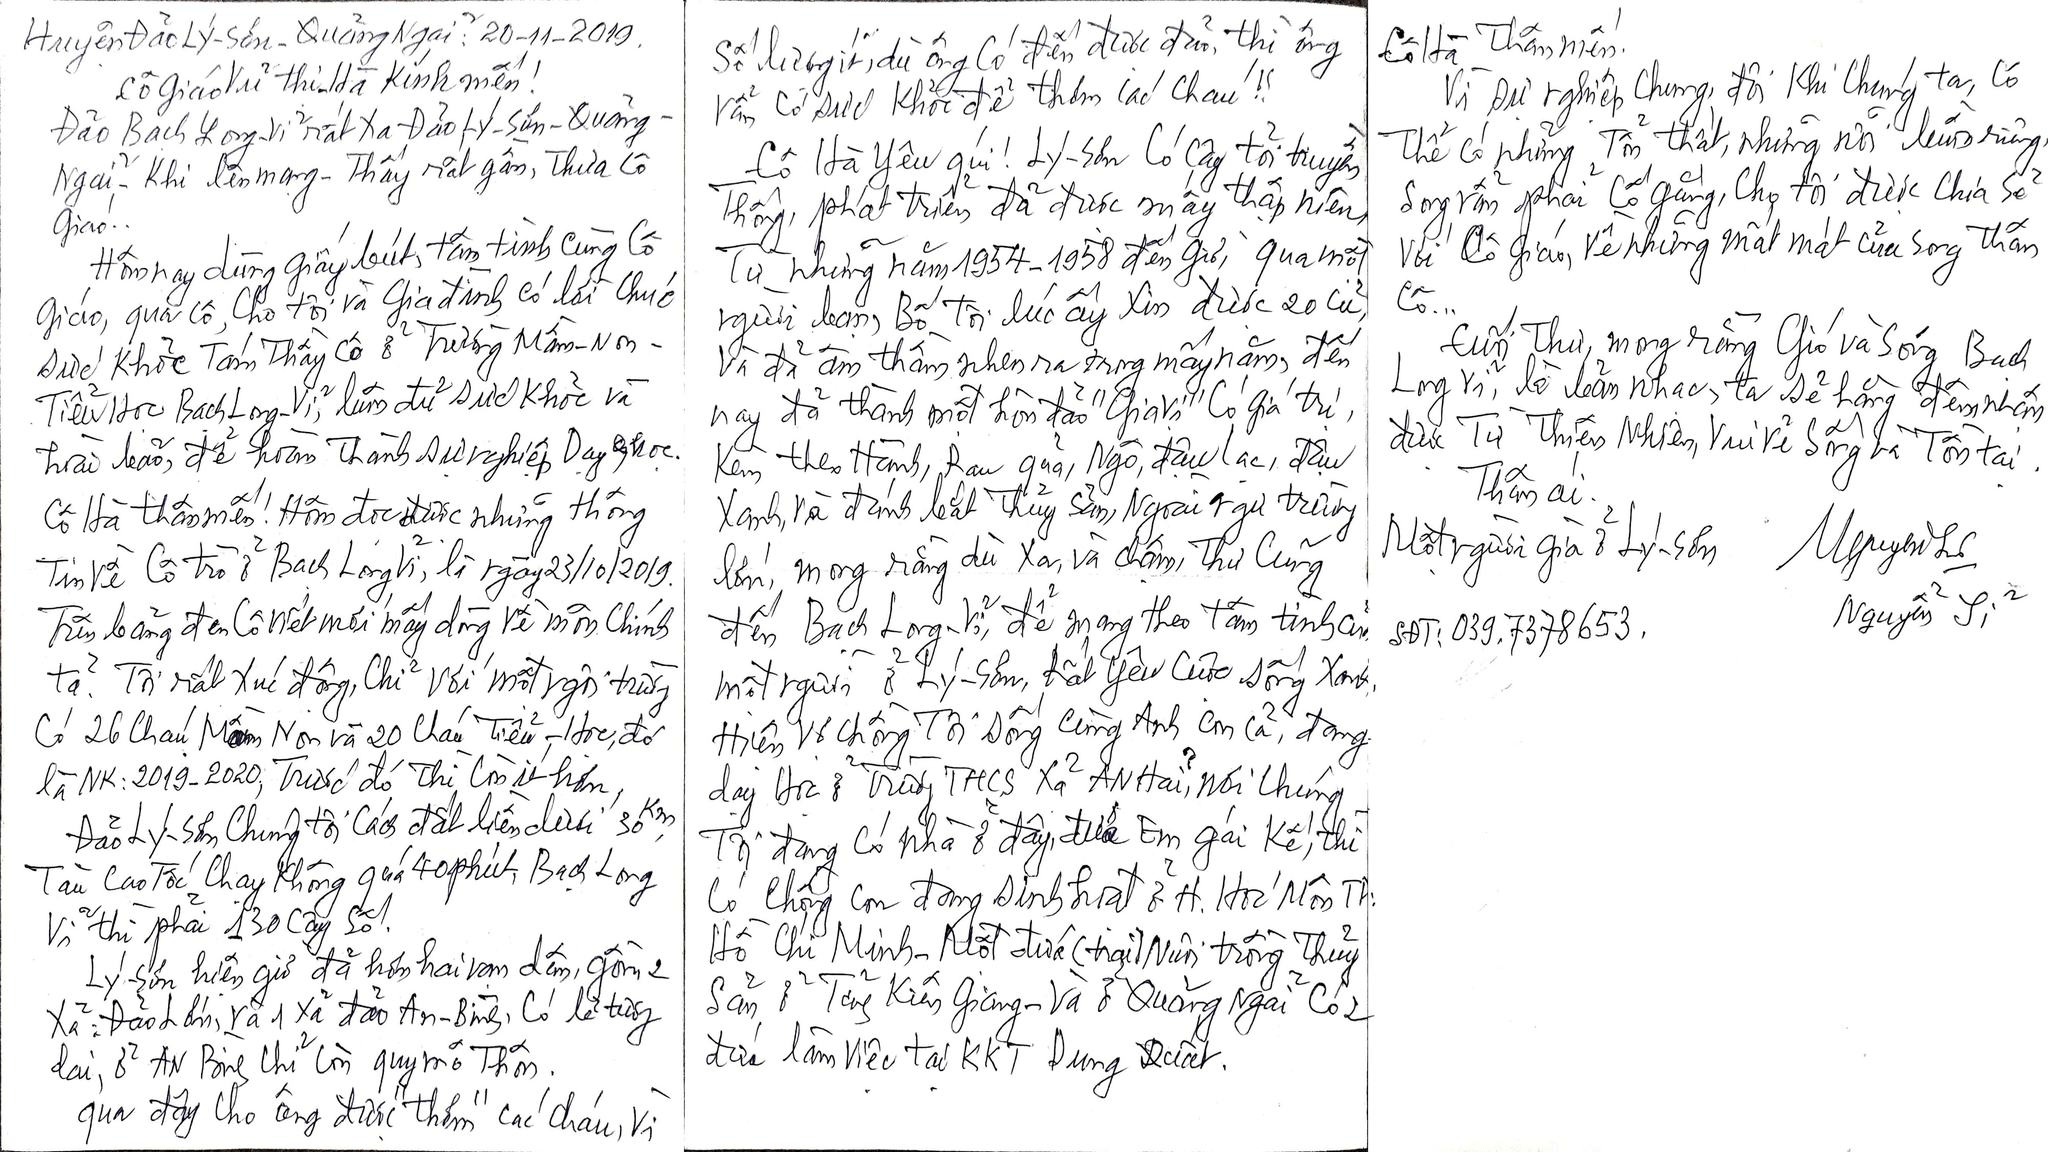 Huyện Đảo Lý-Sơn_ Quảng Ngãi: 20-11-2019.
Cô giáo Vũ thị Hà Kính mến!
Đảo Bạch Long-Vĩ rất xa Đảo Lý-Sơn-Quảng-
Ngãi- Khi lên mạng- Thấy rất gần, Thưa Cô
Giáo..
Hôm nay dùng giấy bút, tâm tình cùng Cô
Giáo, qua Cô, Cho tôi và Gia đình có lời chúc
sức Khỏe Tám Thầy Cô ở Trường Mầm-Non-
Tiểu Học Bạch Long-Vĩ, luôn đủ sức Khỏe và
hoài bão, để hoàn Thành sự nghiệp Dạy học.
Cô Hà thân mến! Hôm đọc được những thông
Tin về Cô trò ở Bạch Long Vĩ, là ngày 23/10/2019.
Trên bảng đen Cô viết mới mấy dòng về môn Chính
tả. Tôi rất xúc động, Chỉ với một ngôi trường
Có 26 Cháu Mầm Non và 20 Cháu Tiểu-Học, đó
là NK: 2019-2020, Trước đó Thì Còn ít hơn,
Đảo Lý-Sơn Chúng tôi Cách đất liền dưới 30 Km,
Tàu Cao Tốc Chạy Không quá 40 phút, Bạch Long
Vĩ thì phải 130 Cây Số!
Lý-Sơn hiện giờ đã hơn hai vạn dân, gồm 2
Xã: Đảo Lớn, và 1 Xã đảo An-Bình, Có lẽ tương
lai, ở AN Bình Chỉ Còn quy mô Thôn.
qua đây Cho ông được "thơm" các cháu, Vì
Số lượng ít, dù ông Có đến được đảo, thì ông
vẫn Có sức Khỏe để thơm các Cháu!!
Cô Hà Yêu quí! Lý-Sơn Có Cây tỏi truyền
Thống, phát triển đã được mấy thập niên,
Từ những năm 1954-1958 đến giờ, qua một
người bạn, Bố Tôi lúc ấy Xin được 20 củ,
và đã âm thầm nhen ra trong mấy năm, đến
nay đã thành một hòn đảo "Gia Vị" Có Giá trị,
Kèm theo Hành, Rau quả, Ngô, đậu lạc, đậu
Xanh, Và đánh bắt Thủy Sản, Ngoài ngư trường
lớn, mong rằng dù Xa, và chậm, Thư Cũng
đến Bạch Long-Vĩ, để mang theo tâm tình của
một người ở Lý-Sơn, rất yêu Cuộc sống Xanh.
Hiện Vợ chồng Tôi sống Cùng Anh Con Cả, đang
dạy Học ở Trường THCS Xã AN Hải, nơi Chúng
Tôi đang Có nhà ở đây, đứa Em gái Kế, thì
Có Chồng Con đang sinh hoạt ở H. Hóc Môn TP.
Hồ Chí Minh- Một đứa (trai) Nuôi trồng Thủy
Sản, ở Tỉnh Kiên Giang- Và ở Quảng Ngãi Có 2
đứa làm việc tại KKT Dung Quất.
Cô Hà Thân mến!
Vì sự nghiệp Chung, đôi Khi Chúng ta, Có
Thể Có những Tổn thất, những nỗi buồn riêng,
Song vẫn phải Cố gắng, Cho tôi được Chia Sẻ
Với Cô Giáo, Về những mất mát của Song Thân
Cô...
Cuối Thư, mong rằng Gió và Sóng Bạch
Long Vĩ, là bản nhạc, ta sẽ hằng đêm nhận
được Từ Thiên Nhiên, Vui Vẻ Sống và Tồn tại.
Thân ái.
Một người già ở Lý-Sơn
Nguyễn Sĩ
SĐT: 039.7378653.